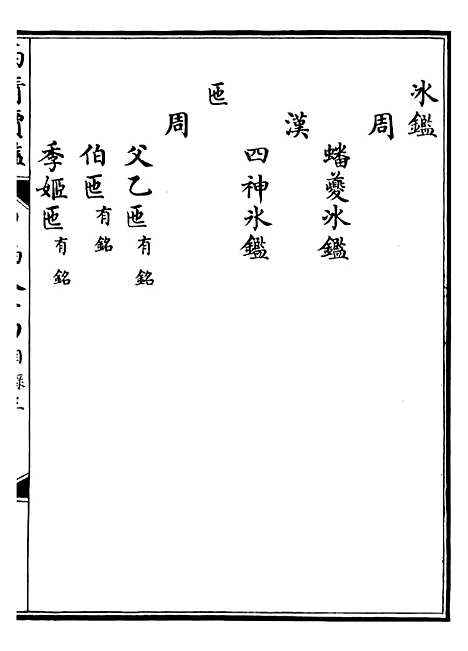 冰鑑
周
蟠夔冰鑑
漢
四神氷鑑
匜
周
父乙匜有銘
伯匜有銘
季姬匜有銘
目錄三